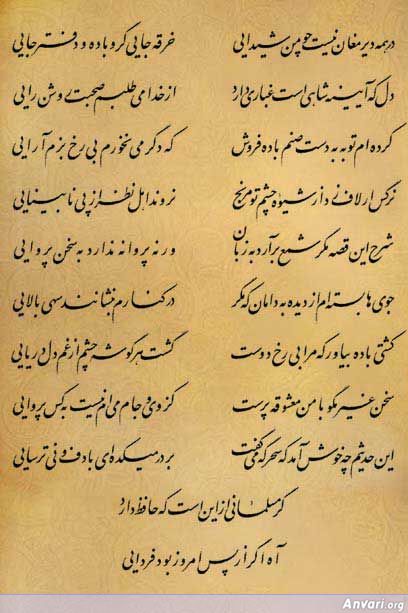 در همه دیر مغان نیست چو من شیدایی خرقه جایی گرو باده و دفتر جایی
دل که آیینه شاهی است غباری دارد از خدا می طلبم صحبت روشن رایی
کرده ام توبه به دست صنم باده فروش که دگر می نخورم بی رخ بزم آرایی
نرگس ار لاف زد از شیوه چشم تو مرنج نروند اهل نظر از پی نابینایی
شرح این قصه مگر شمع برآرد به زبان ورنه پروانه ندارد به سخن پروایی
جوی ها بسته ام از دیده به دامان که مگر در کنارم بنشانند سهی بالایی
کشتی باده بیاور که مرا بی رخ دوست گشت هر گوشه چشم از غم دل دریایی
سخن غیر مگو با من معشوقه پرست کز وی و جام می ام نیست به کس پروایی
این حدیثم چه خوش آمد که سحرگه می گفت بر در میکده ای با دف و نی ترسایی
گر مسلمانی از این است که حافظ دارد
آه اگر از پس امروز بود فردایی
Anvari.org